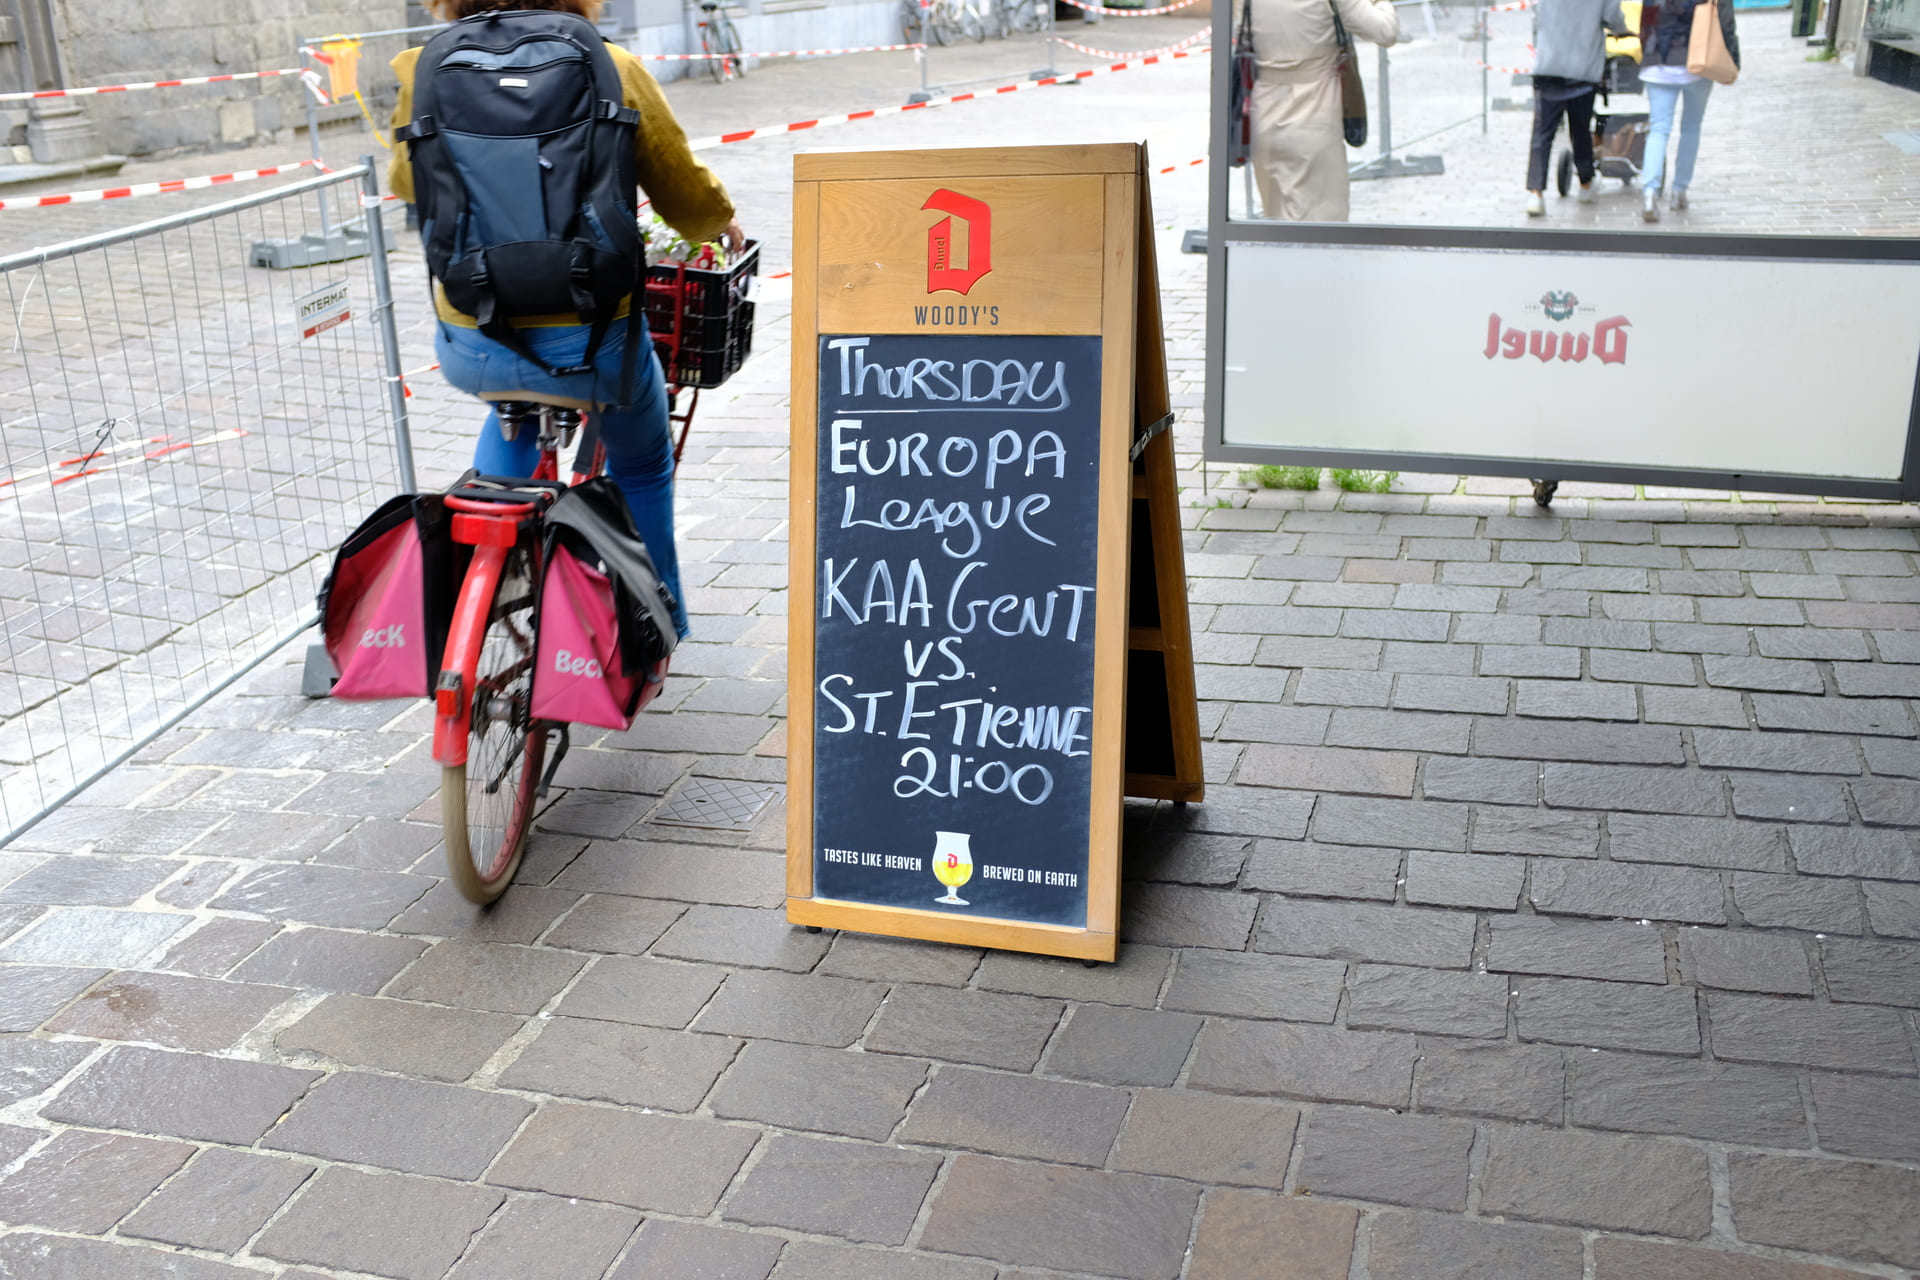 INTERMAT
Duvel
WOODY'S
THURSDAY
EUROPA
LEAGUE
KAA GENT
VS.
ST. ETIENNE
21:00
TASTES LIKE HEAVEN BREWED ON EARTH
Beck
Beck
Duvel